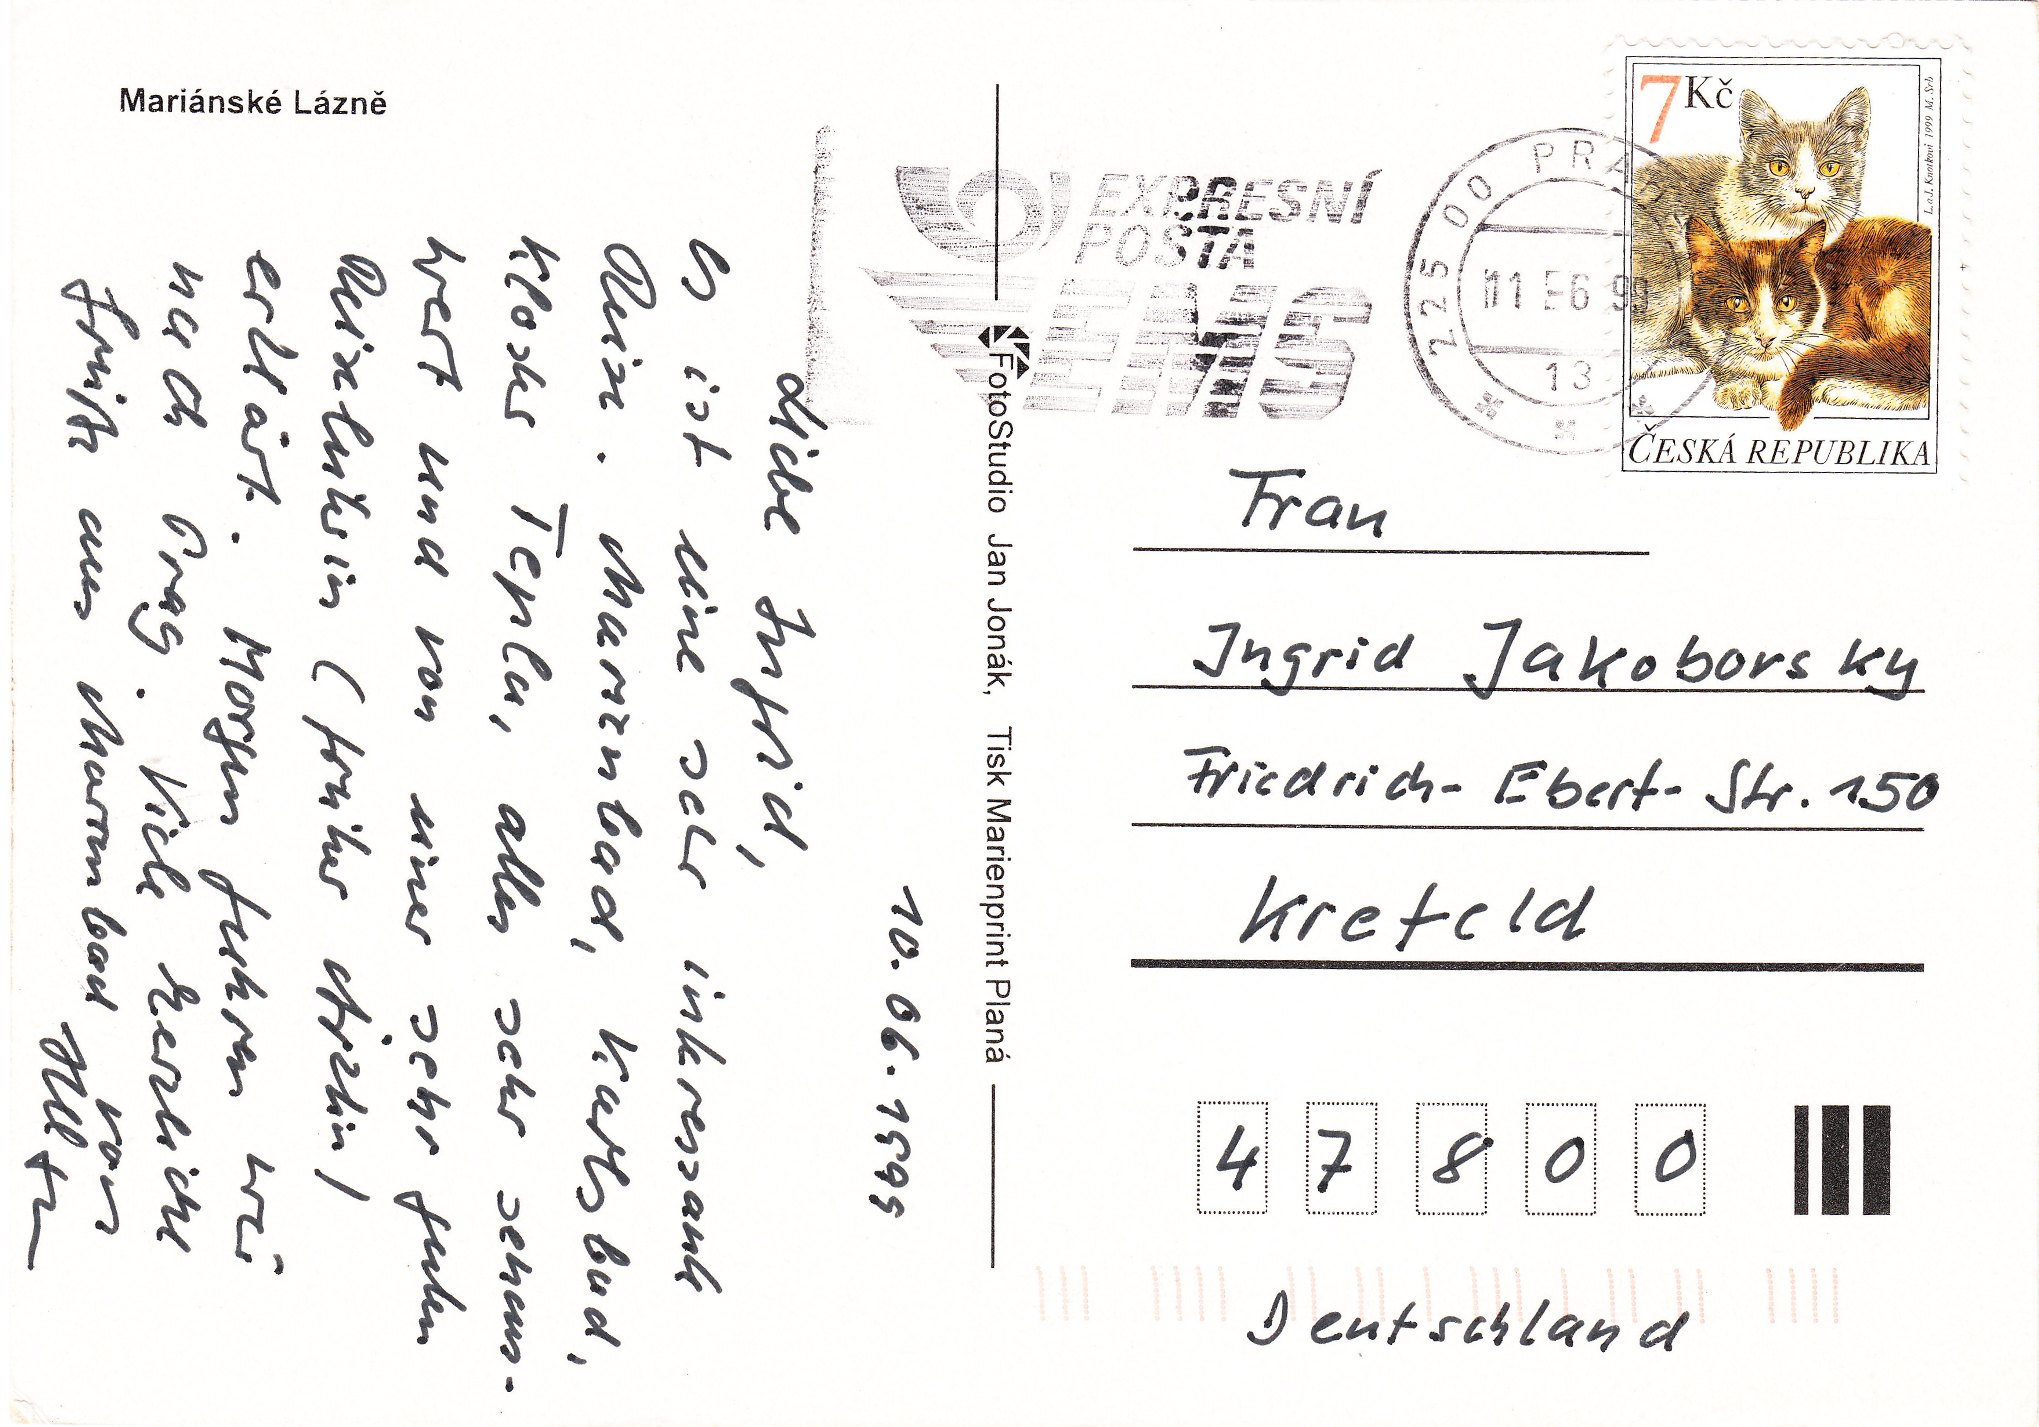 Mariánské Lázně
10.06.1999
Liebe Ingrid,
Es ist eine sehr interessante
Reise. Marienbad, Karlsbad,
Kloster Tepla, alles sehr sehens-
wert und von einer sehr guten
Reiseleiterin (früher Ärztin)
erklärt. Morgen fahren wir
nach Prag. Viele herzliche
Grüße aus Marienbad von
FotoStudio Jan Jonák, Tisk Marienprint Planá
EXPRESNÍ
POŠTA
EMS
225 00 PRA
11 -6 99
13
7 Kč
L. a J. Knotkovi 1999 M. Srb
ČESKÁ REPUBLIKA
Frau
Ingrid Jakoborsky
Friedrich-Ebert-Str. 150
Krefeld
47800
Deutschland